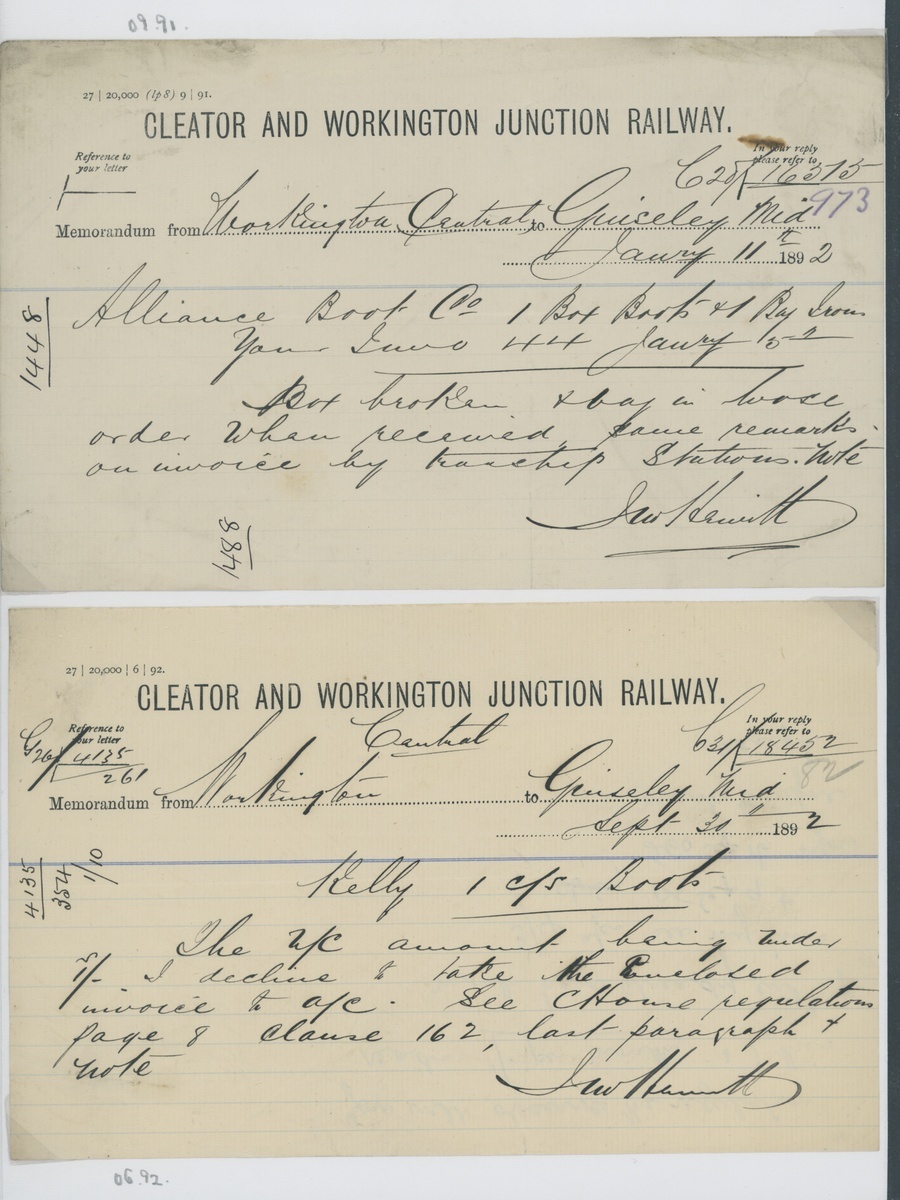 09.91.
27 | 20,000 (1p8) 9 | 91.
CLEATOR AND WORKINGTON JUNCTION RAILWAY.
Reference to
your letter
In your reply
please refer to
C20/16515
973
Memorandum from Workington Central to Guiseley Mid
Janry 11th 1892
1448
Alliance Boot Co 1 Box Boots & 1 Bag Irons
Your Invo 44 Janry 5
Box broken & bag in loose
order when received, same remarks
on invoice by tranship Stations. Note
Jno Hewitt
1488
27 | 20,000 | 6 | 92.
CLEATOR AND WORKINGTON JUNCTION RAILWAY.
Reference to
your letter
G26/4135
261
Central
In your reply
please refer to
C31/18452
82
Memorandum from Workington to Guiseley Mid
Sept 30 1892
4135
354
1/10
Kelly 1 c/s Boots
The U/C amount being under
5/- I decline to take the Enclosed
invoice to a/c. See CHouse regulations
page 8 clause 162, last paragraph &
note
Jno Hewitt
06.92.